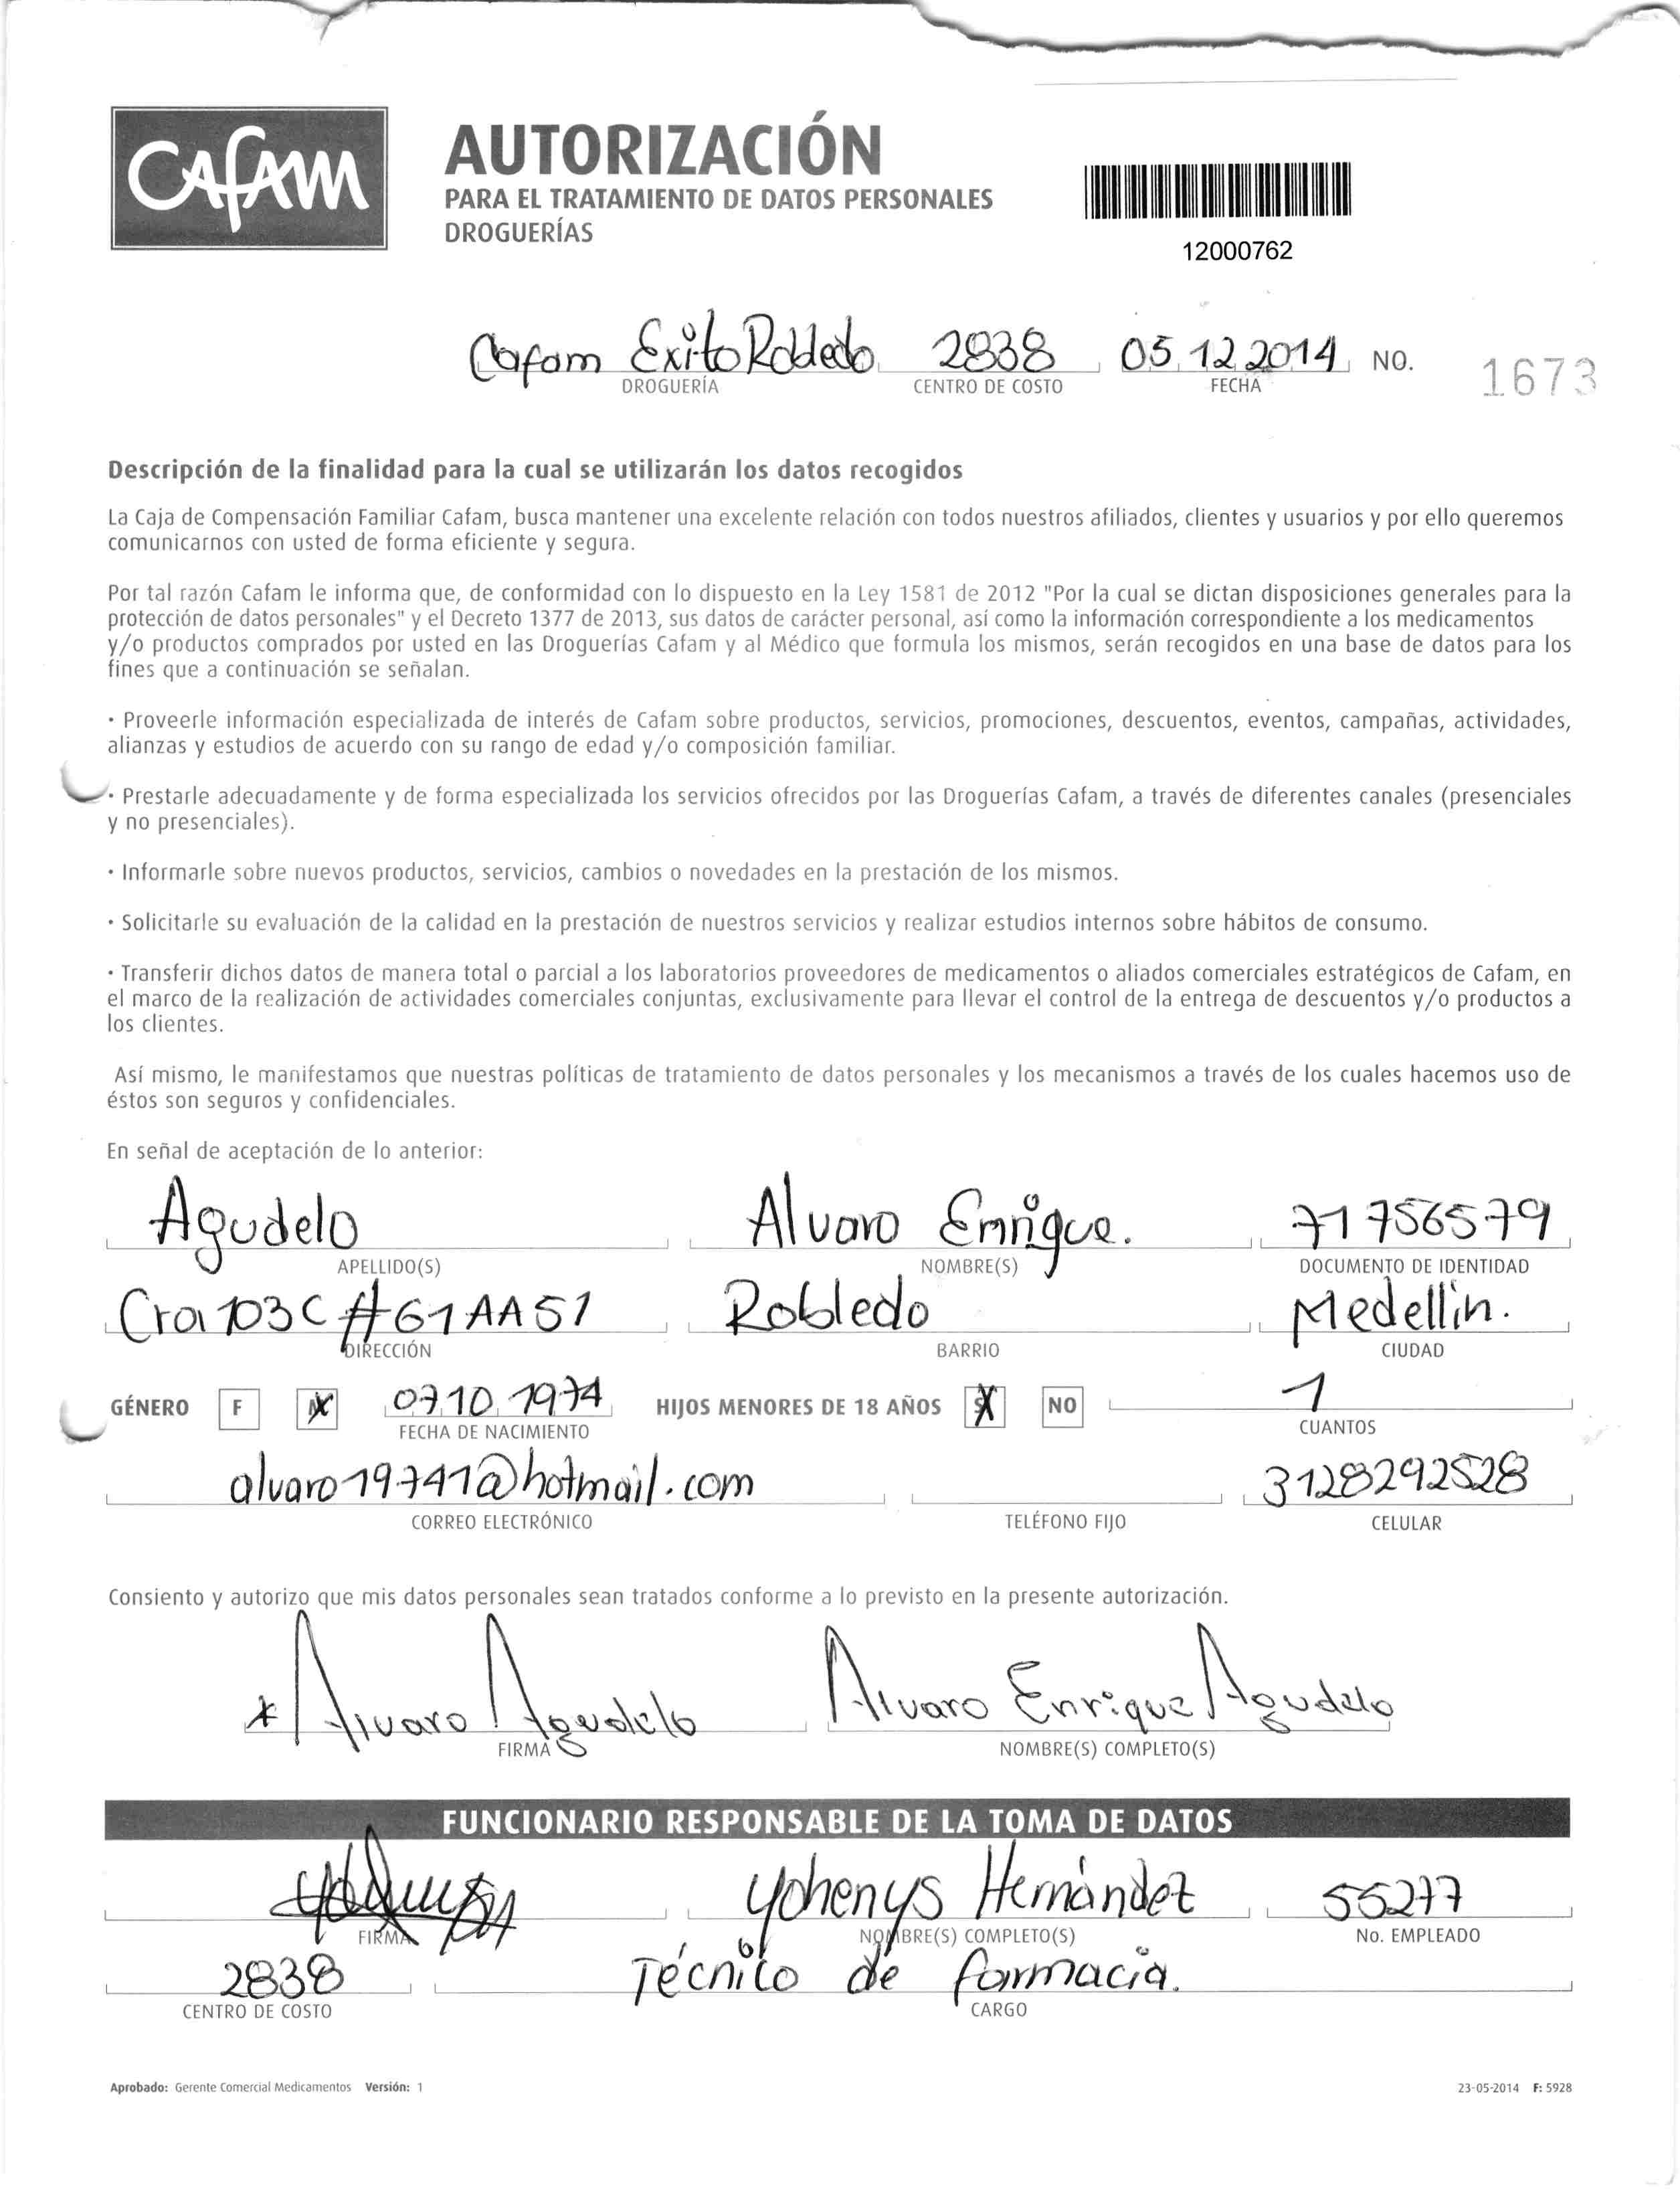 Cafam
AUTORIZACIÓN
PARA EL TRATAMIENTO DE DATOS PERSONALES
DROGUERÍAS
12000762
Cafam Exito Robledo 2838 05 12 2014 NO. 1673
DROGUERÍA CENTRO DE COSTO FECHA
Descripción de la finalidad para la cual se utilizarán los datos recogidos
La Caja de Compensación Familiar Cafam, busca mantener una excelente relación con todos nuestros afiliados, clientes y usuarios y por ello queremos
comunicarnos con usted de forma eficiente y segura.
Por tal razón Cafam le informa que, de conformidad con lo dispuesto en la Ley 1581 de 2012 "Por la cual se dictan disposiciones generales para la
protección de datos personales" y el Decreto 1377 de 2013, sus datos de carácter personal, así como la información correspondiente a los medicamentos
y/o productos comprados por usted en las Droguerías Cafam y al Médico que formula los mismos, serán recogidos en una base de datos para los
fines que a continuación se señalan.
· Proveerle información especializada de interés de Cafam sobre productos, servicios, promociones, descuentos, eventos, campañas, actividades,
alianzas y estudios de acuerdo con su rango de edad y/o composición familiar.
· Prestarle adecuadamente y de forma especializada los servicios ofrecidos por las Droguerías Cafam, a través de diferentes canales (presenciales
y no presenciales).
· Informarle sobre nuevos productos, servicios, cambios o novedades en la prestación de los mismos.
· Solicitarle su evaluación de la calidad en la prestación de nuestros servicios y realizar estudios internos sobre hábitos de consumo.
· Transferir dichos datos de manera total o parcial a los laboratorios proveedores de medicamentos o aliados comerciales estratégicos de Cafam, en
el marco de la realización de actividades comerciales conjuntas, exclusivamente para llevar el control de la entrega de descuentos y/o productos a
los clientes.
Así mismo, le manifestamos que nuestras políticas de tratamiento de datos personales y los mecanismos a través de los cuales hacemos uso de
éstos son seguros y confidenciales.
En señal de aceptación de lo anterior:
Agudelo Alvaro Enrique. 71756579
APELLIDO(S) NOMBRE(S) DOCUMENTO DE IDENTIDAD
Cra 103C #61AA51 Robledo Medellín.
DIRECCIÓN BARRIO CIUDAD
GÉNERO F M X 07 10 1974 HIJOS MENORES DE 18 AÑOS SI X NO 1
FECHA DE NACIMIENTO CUANTOS
alvaro19741@hotmail.com 3128292528
CORREO ELECTRÓNICO TELÉFONO FIJO CELULAR
Consiento y autorizo que mis datos personales sean tratados conforme a lo previsto en la presente autorización.
x Alvaro Agudelo Alvaro Enrique Agudelo
FIRMA NOMBRE(S) COMPLETO(S)
FUNCIONARIO RESPONSABLE DE LA TOMA DE DATOS
Yohenys Hernández 55277
FIRMA NOMBRE(S) COMPLETO(S) No. EMPLEADO
2838 Técnico de farmacia.
CENTRO DE COSTO CARGO
Aprobado: Gerente Comercial Medicamentos Versión: 1 23-05-2014 F: 5928